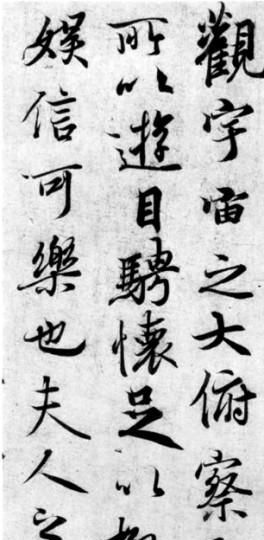 觀宇宙之大俯察
所以遊目騁懷足以
娛信可樂也夫人之